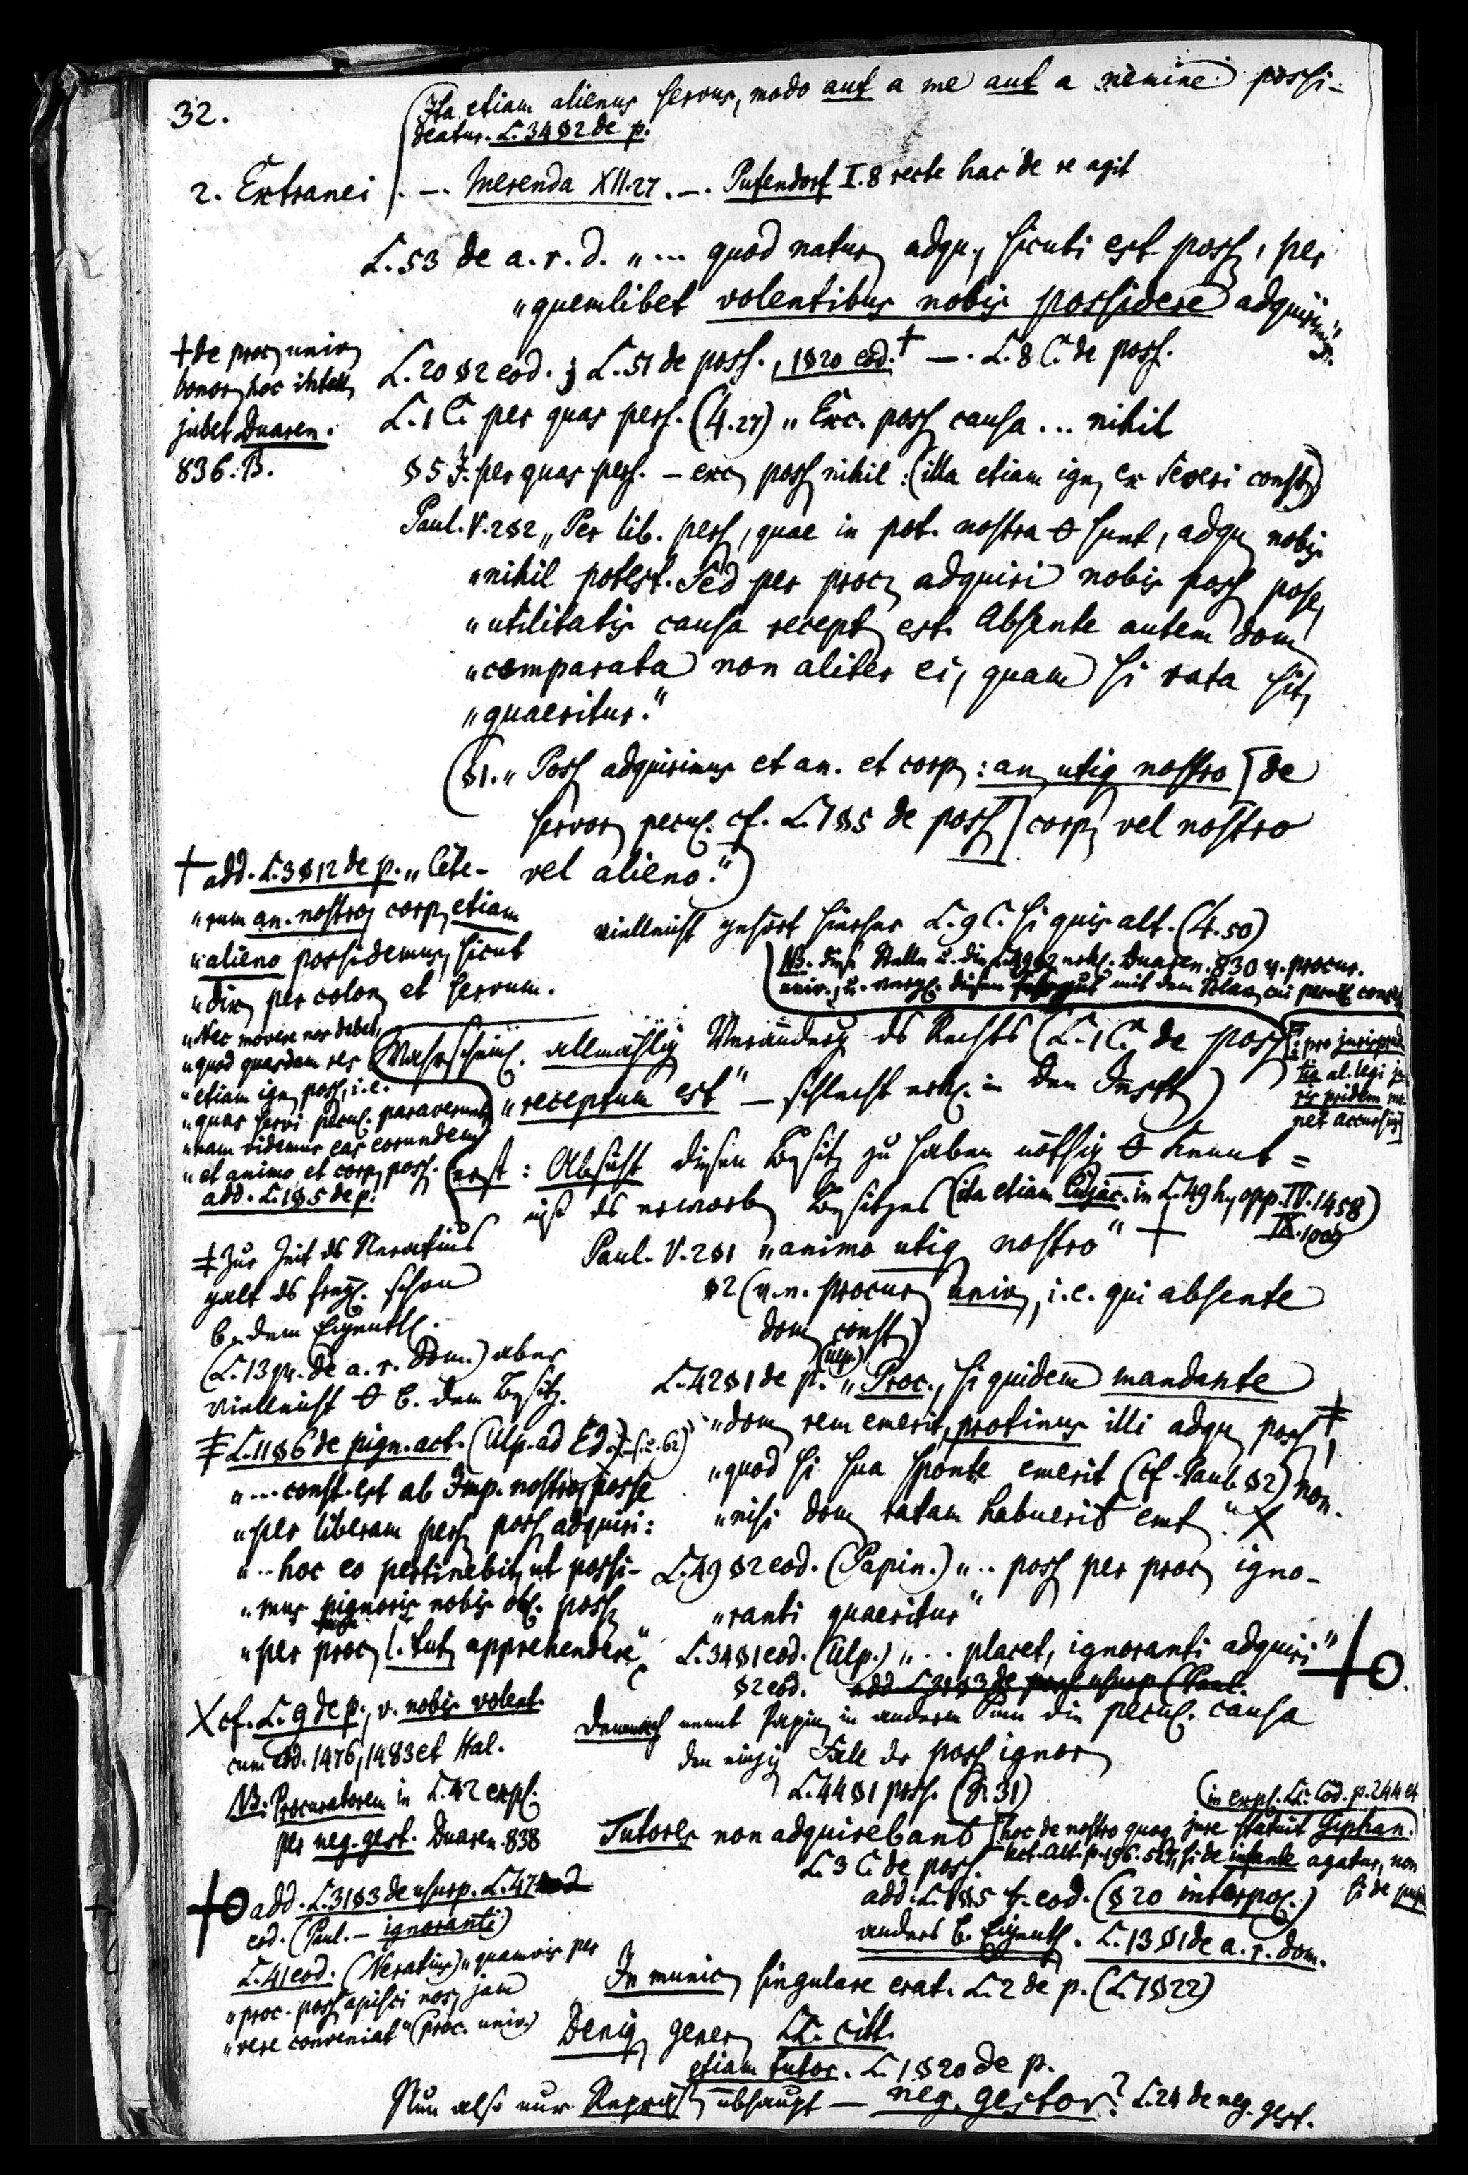 32.
(Ita etiam alienus servus, modo aut a me aut a nemine possi-
deatur. L. 34 § 2 de p.
2. Extranei . —. Merenda XII.27. —. Pufendorf I.8 recte hac de re agit
L. 53 de a. r. d. „... quod natur adqu, sicuti est poss, per
„quemlibet volentibus nobis possidere adquirim"
L. 20 § 2 eod. ; L. 51 de poss., 1 § 20 eod.† —. L. 8 C. de poss.
L. 1 C. per quas pers. (4.27) „Exc. poss causa ... nihil
§ 5 J. per quas pers. — exc poss nihil : (illa etiam ign, ex Severi const)
Paul. V. 2 § 2 „Per lib. pers, quae in pot. nostra θ sunt, adqu nobis
„nihil potest. Sed per proc adquiri nobis poss posse,
„utilitatis causa recept est. Absente autem dom
„comparata non aliter ei, quam si rata sit,
„quaeritur."
(§ 1. „Poss adquirimus et an. et corp : an utiq nostro [de
servor pecul. cf. L. 1 § 5 de poss] corp vel nostro
vel alieno.")
† de proc univ
bonor hoc intell
jubet Duaren.
836. B.
vielleicht gehört hierher L. 9 C. si quis alt. (4.50)
NB. diese Stelle u. die L. 49 § 2 erkl. Duaren. 830 v. procur.
univ.,
Wahrscheinl. allmählig Veränderg ds Rechts (L. 1 C. de poss
„receptum est" — schlecht erkl. in den Instt)
[: pro jurisprud
tia al. legi ju-
ris pridem mo-
net accursius]
erst : Absicht diesen Besitz zu haben nöthig θ Kennt=
niß ds erworb Besitzes (ita etiam Cujac. in L. 49 h, opp. IV. 1458)
IX. 1009
Paul. V. 2 § 1 „animo utiq nostro" †
§ 2 (v. n. procur univ, i.e. qui absente
dom const)
L. 42 § 1 de p. (Ulp.) „Proc., si quidem mandante
„dom rem emerit, protinus illi adqu poss ‡,
„quod si sua sponte emerit (cf. Paul. § 2) non.
„nisi dom ratam habuerit emt." X
L. 49 § 2 eod. (Papin.) „.. poss per proc igno-
„ranti quaeritur"
L. 34 § 1 eod. (Ulp.) „... placet, ignoranti adquiri" †O.
§ 2 eod. add L 31 § 3 de usurp (Paul.
Dennoch nennt Papin in anderm Sinn die pecul. causa
den einzig Fall der poss ignor
L. 44 § 1 poss. (S. 31)
Tutores non adquirebant [hoc de nostro quoq jure statuit Giphan.
(in expl. LL. Cod. p. 244 et
lect. Alt. p. 196. 527, si de infante agatur, non
si de pupi
L. 3 C. de poss.
add. L. 1 § 5 eod. (§ 20 interpol.)
anders b. Eigenth. L. 13 § 1 de a. r. dom.
In munic singulare erat. L. 2 de p. (L. 1 § 22)
Deniq gener LL. citt.
etiam tutor. L. 1 § 20 de p.
Nun also nur Repräs überhaupt — neg. gestor? L. 24 de neg. gest.
† add. L. 3 § 12 de p. „Cete-
„rum an. nostro, corp etiam
„alieno possidemus, sicut
„dix per colon et servum.
„Nec movere nos debet,
„quod quasdam res
„etiam ign poss, i.e.
„quas servi pecul. paraverunt
„nam videmur eas eorundem
„et animo et corp poss.
add. L. 1 § 5 de p.
‡ Zur Zeit ds Neratius
galt ds freyl. schon
b. dem Eigenth.
(L. 13 pr. de a. r. dom.) aber
vielleicht θ b. dem Besitz.
‡ L. 11 § 6 de pign. act. (Ulp. ad Ed.)
„... const. est ab Imp. nostro, posse
„per liberam pers poss adquiri :
„.. hoc eo pertinebit, ut possi-
„mus pignoris nobis obl. poss
„per proc l. tut apprehendere"
X cf. L. 9 de p., v. nobis volent.
cum edd. 1476, 1483 et Hal.
NB. Procuratorem in L. 42 expl.
per neg. gest. Duaren. 838
†O add. L. 31 § 3 de usurp. L. 47
eod. (Paul. — ignoranti)
L. 41 eod. (Neratius) „quamvis per
„proc. poss apisci nos jam
„vere conveniat" (Proc. univ.)